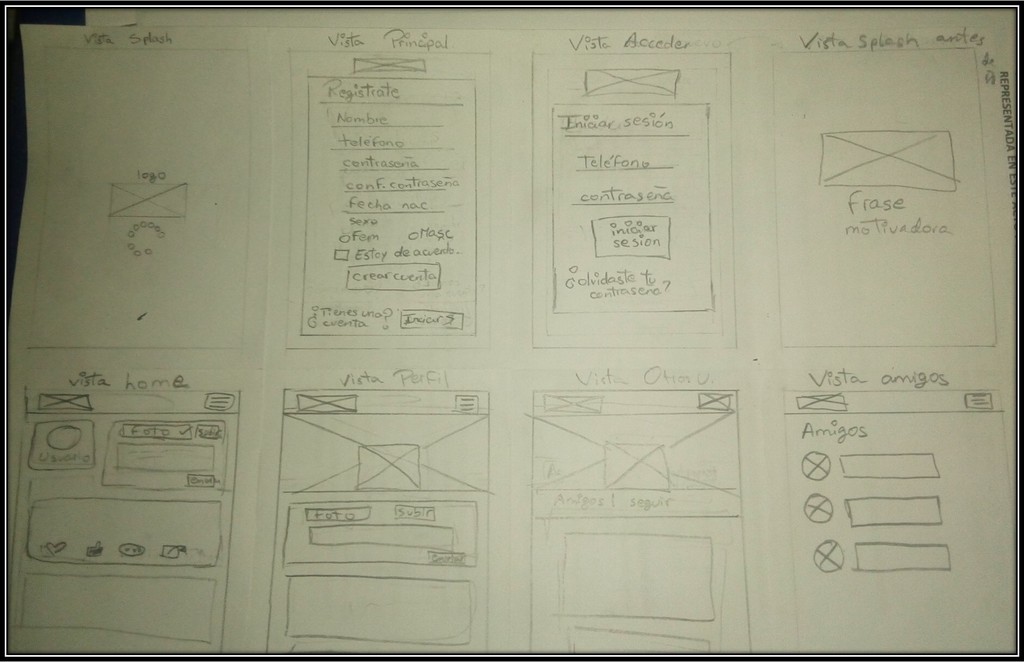 Vista Splash
logo
Vista Principal
Registrate
Nombre
teléfono
contraseña
conf. contraseña
fecha nac
sexo
Fem Masc
Estoy de acuerdo..
crear cuenta
¿Tienes una?
cuenta
Iniciar S
Vista Acceder
Iniciar sesión
Teléfono
contraseña
iniciar
sesion
¿olvidaste tu
contraseña?
Vista splash antes
de
frase
motivadora
REPRESENTADA EN ESTE
vista home
Foto Subir
Usuario
Vista Perfil
Foto Subir
Vista Otro U.
Amigos | seguir
Vista amigos
Amigos